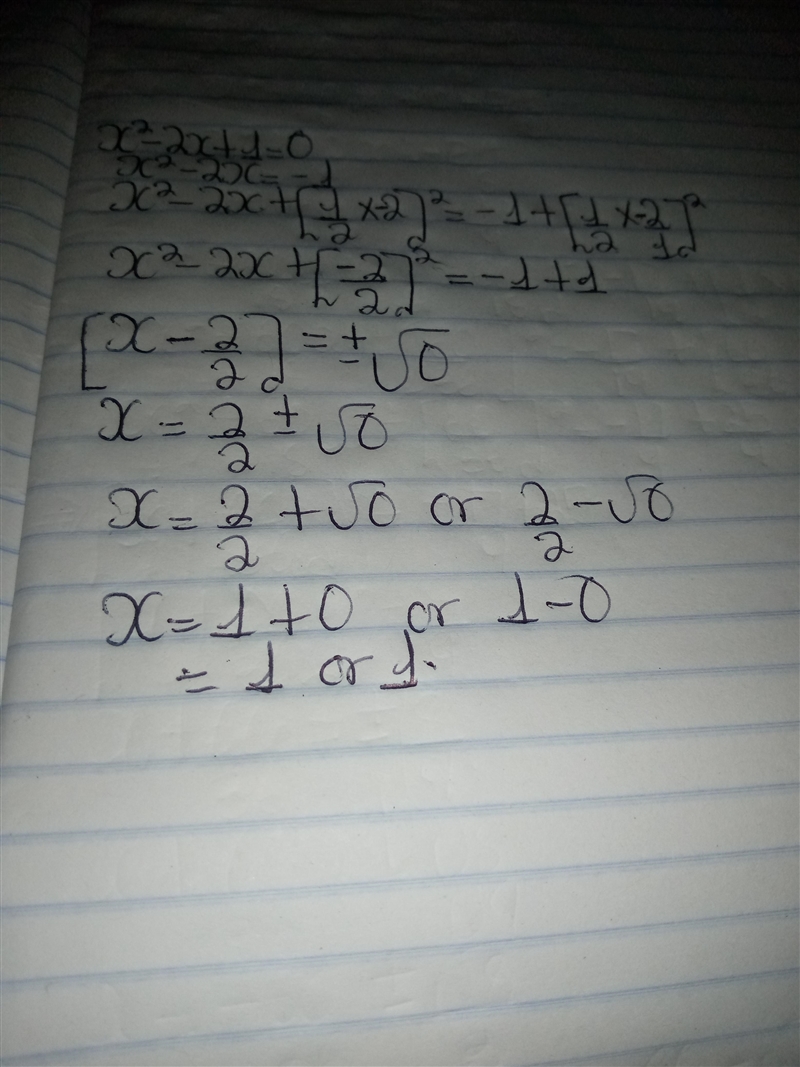 x² - 2x + 1 = 0
x² - 2x = -1
x² - 2x + [1/2 × -2]² = -1 + [1/2 × -2/1]²
x² - 2x + [-2/2]² = -1 + 1
[x - 2/2] = ± √0
x = 2/2 ± √0
x = 2/2 + √0 or 2/2 - √0
x = 1 + 0 or 1 - 0
= 1 or 1.